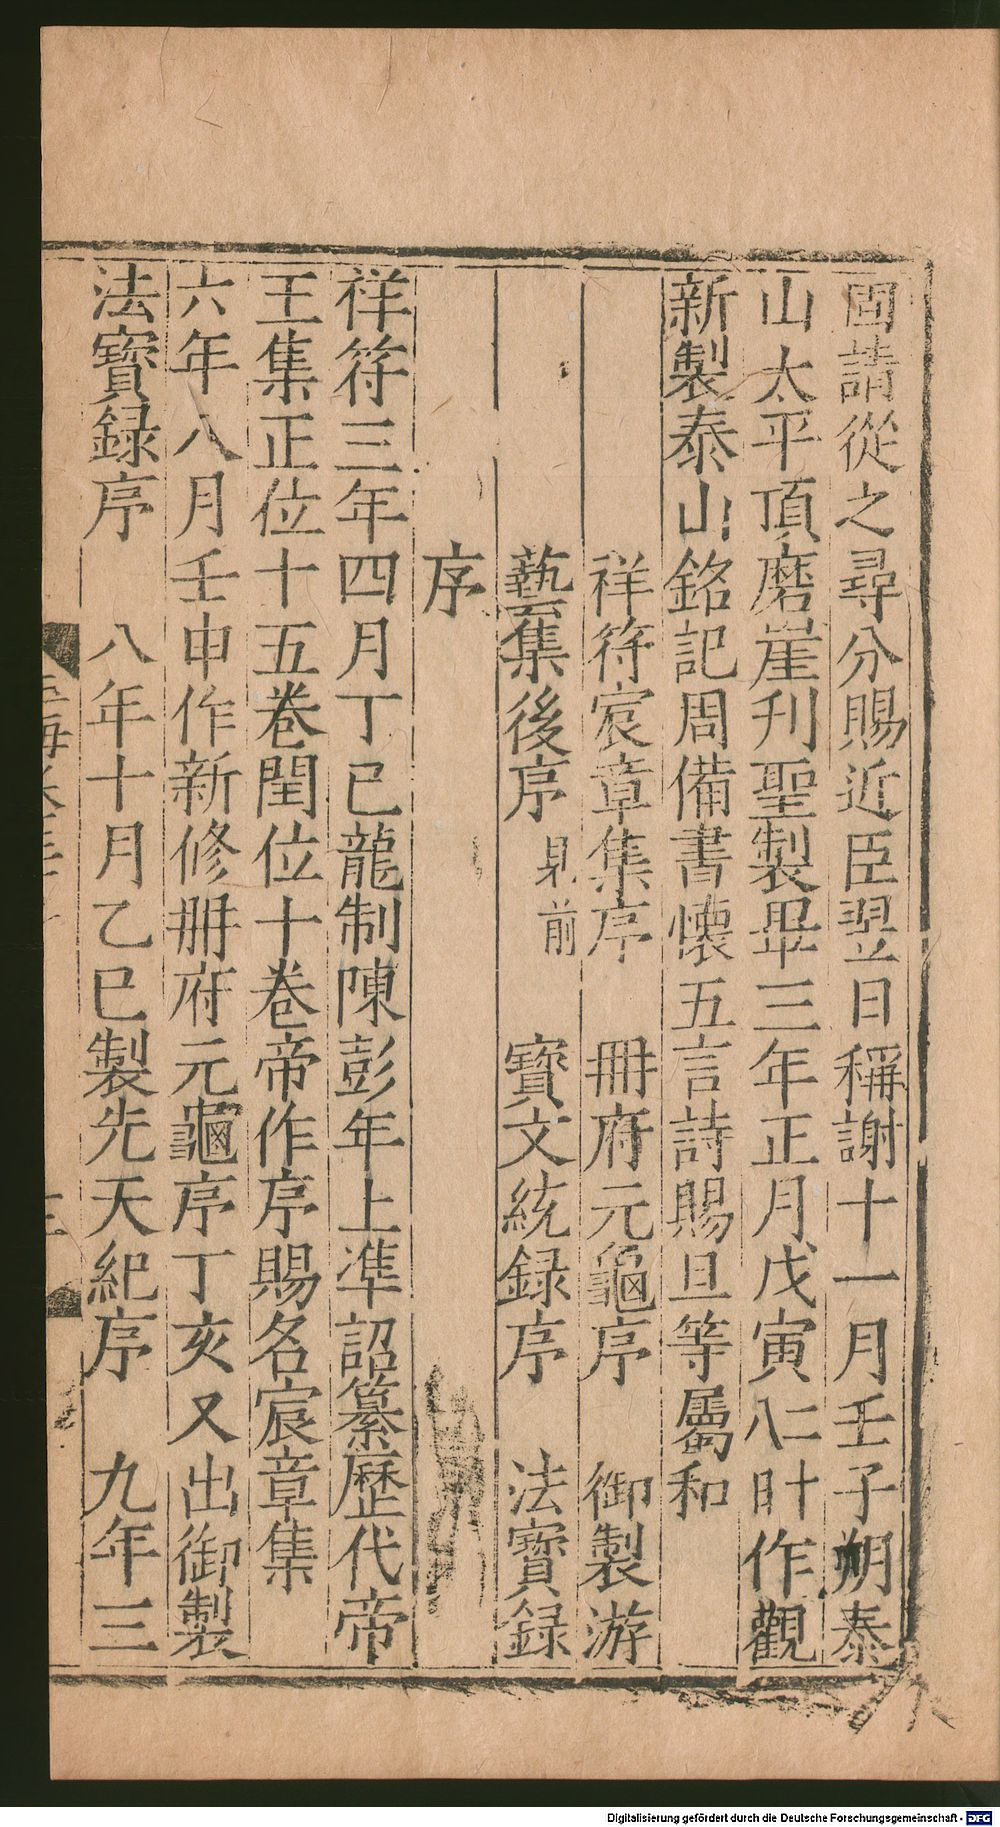 固請從之尋分賜近臣翌日稱謝十一月壬子朔泰
山太平頂磨崖刊聖製畢三年正月戊寅〈二十八〉日作觀
新製泰山銘記周備書懷五言詩賜旦等屬和
祥符宸章集序 冊府元龜序 御製游
藝集後序 見前 寶文統録序 法寶録
序
祥符三年四月丁巳龍制陳彭年上準詔纂歷代帝
王集正位十五卷閏位十卷帝作序賜名宸章集
六年八月壬申作新修冊府元龜序丁亥又出御製
法寶録序 八年十月乙巳製先天紀序 九年三
Digitalisierung gefördert durch die Deutsche Forschungsgemeinschaft - DFG